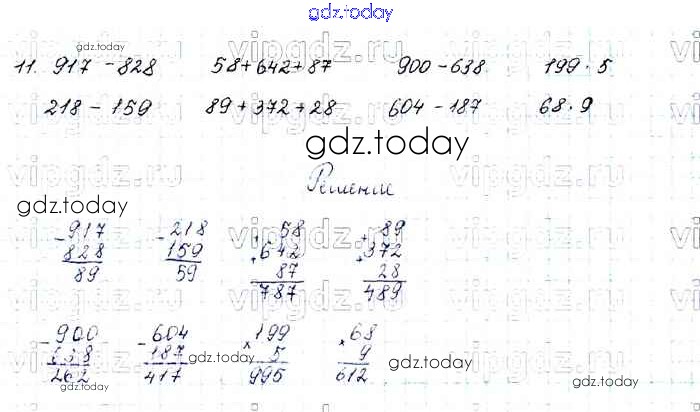 gdz.today
gdz.today
11. 917 - 828 58+642+87 900-638 199·5
218 - 159 89+372+28 604-187 68·9
gdz.today
Решение
gdz.today
-917 -218 +58 +89
828 159 +642 +372
89 59 87 28
787 489
-900 -604 ×199 ×68
638 187 5 9
262 417 995 612
gdz.today
gdz.today
gdz.today
vipgdz.ru